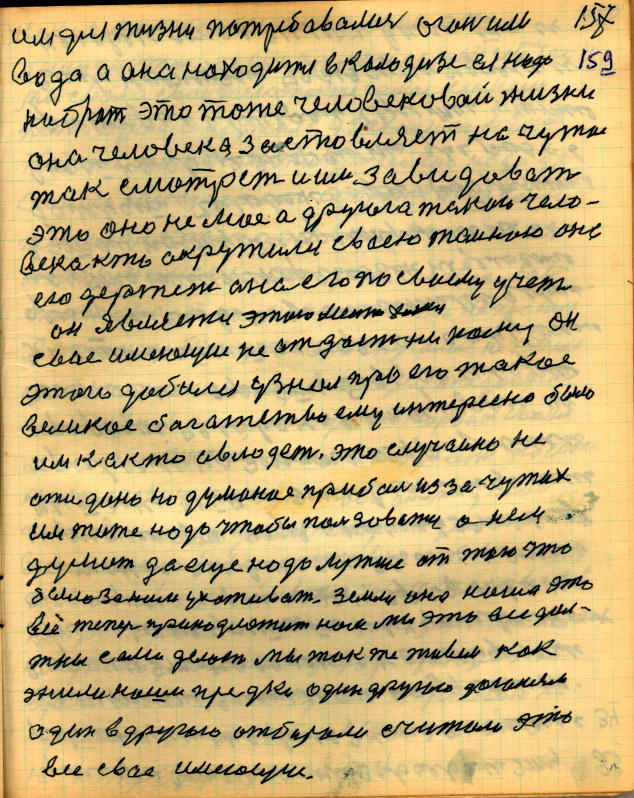 им для жизни потребовался огон или 158
вода а она находится в колодизе ея надо 159
набрат это тоже человековай жизни
она человека заставляет на чужое
так смотрет и им завидоват
это оно не мае а другога такога чело-
века кто окружили своею тайною она
его держет она его по своему учет
он является этого места
свае имеющие не отдаст ни кому он
этого добился узнал про его такое
великое багатство ему интересно было
им как то овлодет. это случайно не
ожидано но думаное прибал из за чужих
им тоже надо чтобы ползоватц о нем
думат да еще надо лутше от того что
было за ним ухаживат. Земля она наша это
всё тепер принодлежит нам мы это все дол-
жны сами делат мы так же живем как
жили наши предки один другого дагонял
один в другого отбирали считали это
все свае имеющие.